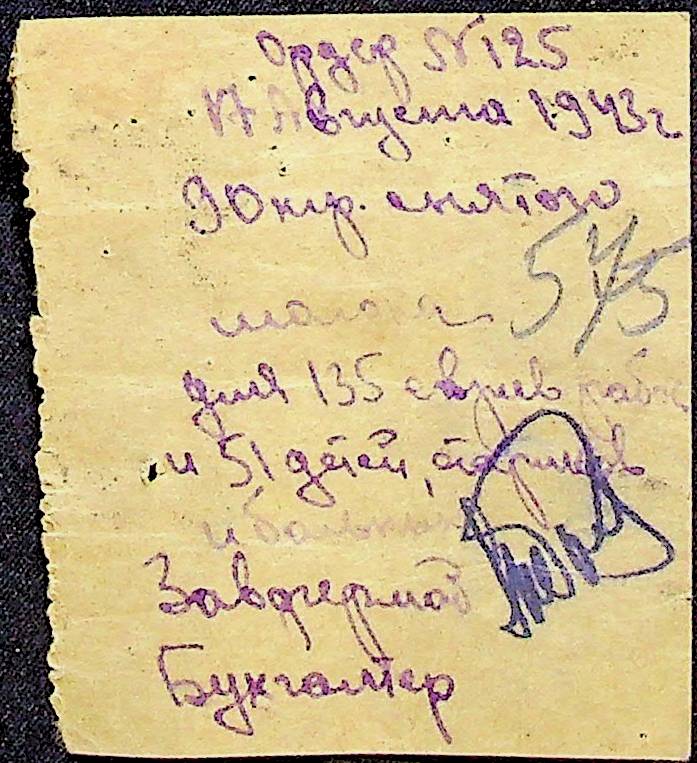 Ордер N 125
17 Августа 1943 г
90 кгр. снятого
575
молока
для 135 евреев рабоч
и 51 детей, стариков
и больных
Завфермой
Бухгалтер